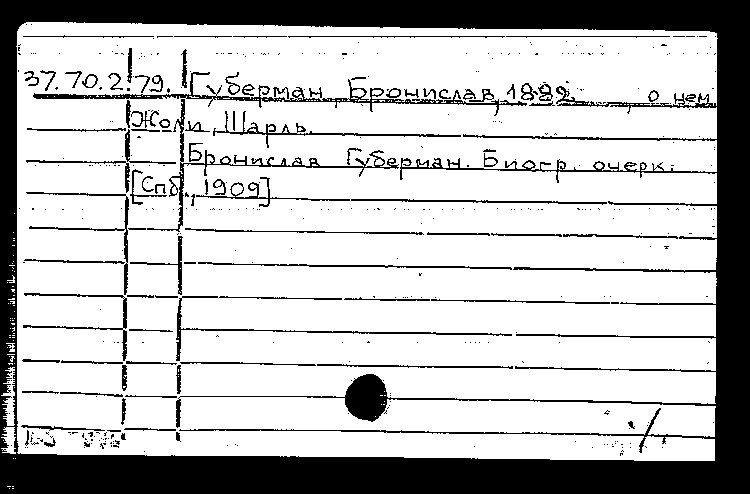 37.70.2.79. Губерман, Бронислав, 1882 , о нем
Жоли, Шарль.
Бронислав Губерман. Биогр. очерк.
[Спб., 1909]